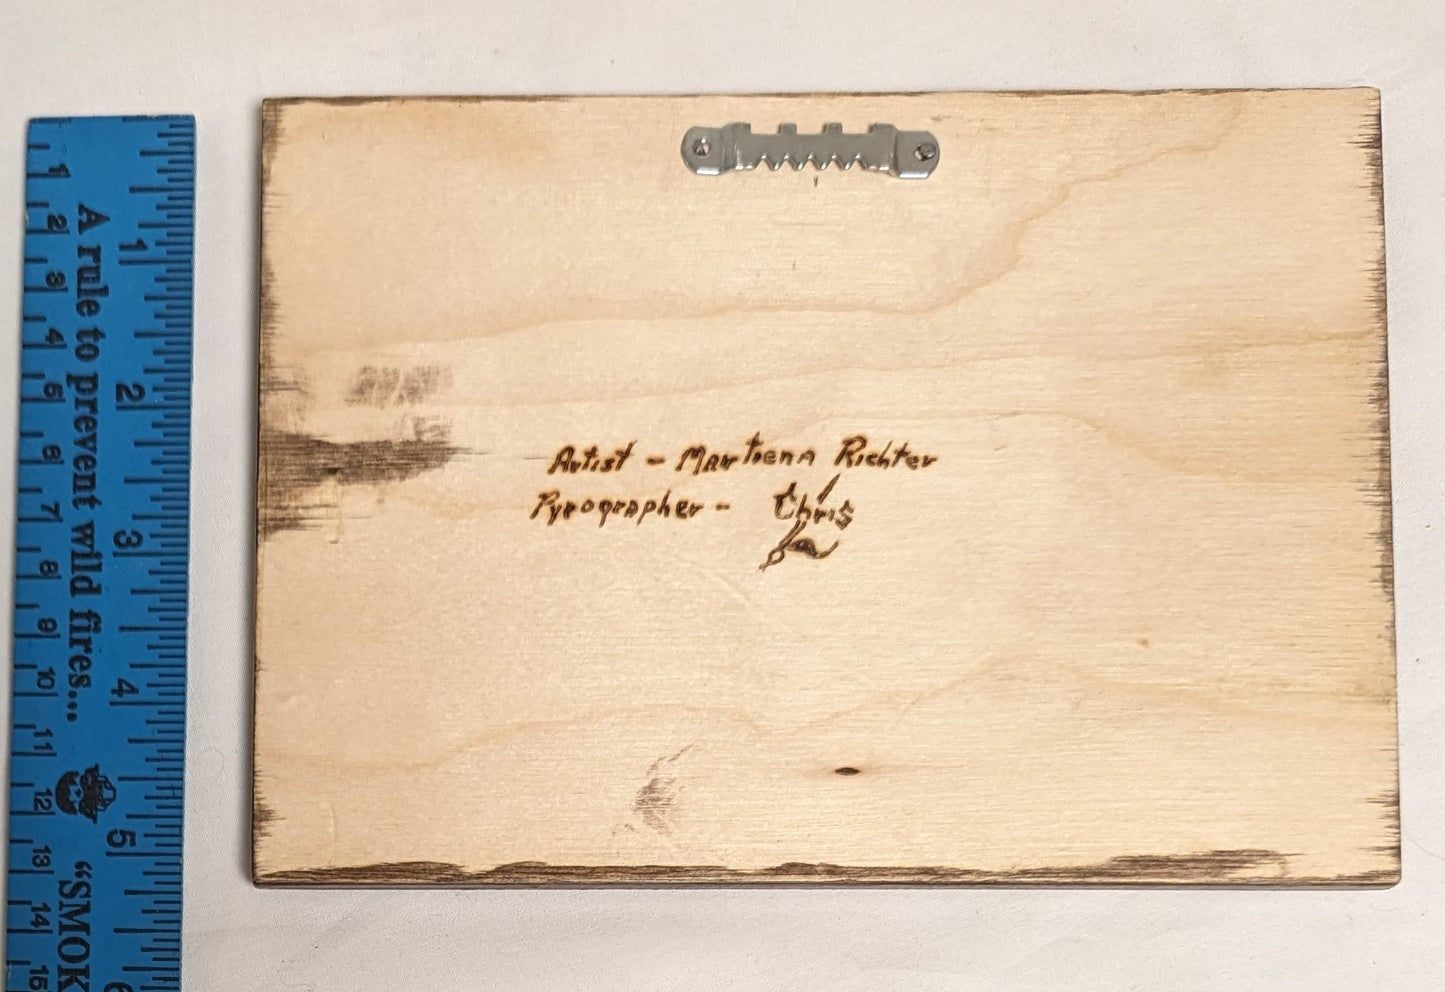 Artist - Martiena Richter
Pyrographer - Chris
A rule to prevent wild fires...
"SMOK
1
2
3
4
5
6
7
8
9
10
11
12
13
14
15
1
2
3
4
5
6